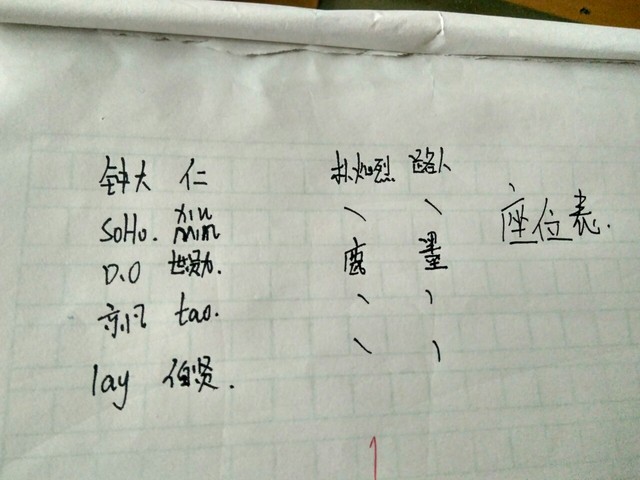 钟大 仁 朴灿烈 路人
SoHo. xiu min 、 、 座位表.
D.O 世勋. 鹿 墨
亦凡 tao. 、 、
lay 伯贤. 、 、